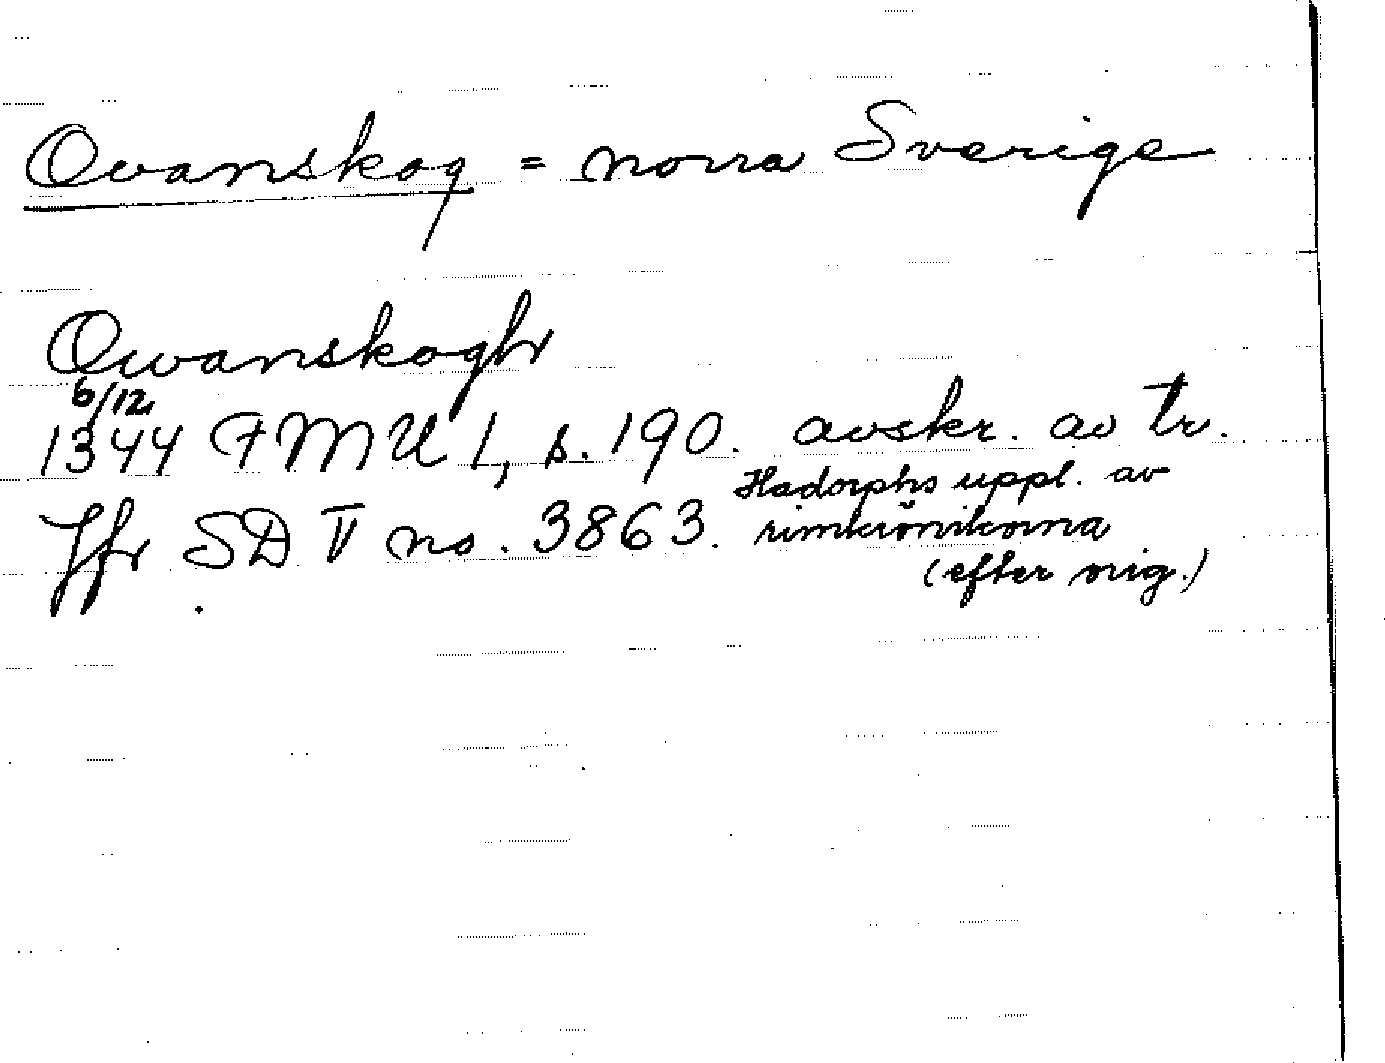 Ovanskog = norra Sverige
Owanskoghr
6/12
1344 FMU I, s. 190. avskr. av tr.
Hadorphs uppl. av
Jfr SD V no. 3863. rimkrönikorna
(efter orig.)